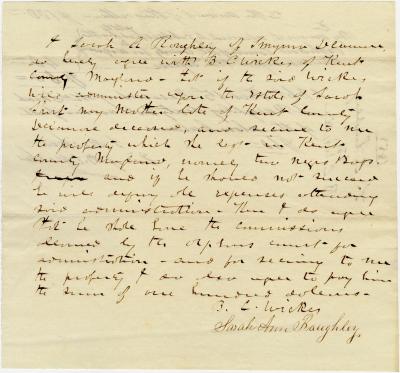 I Sarah A Raughley of Smyrna Delaware
do herby agree with B. C. Wickes of Kent
County Maryland - that if the said Wickes
will administer upon the Estate of Sarah
my Mother late of Kent County
Delaware deceased, and secure to me
the property which she left in Kent
County Maryland, namely two negro Boys
and if he should not succeed
he will defray all expenses attending
said administration - then I do agree
that he shall have the commissions
allowed by the orphans court for
administration - and for securing to me
the property I do also agree to pay him
the sum of one hundred dollars -
B. C. Wickes
Sarah Ann Raughley.